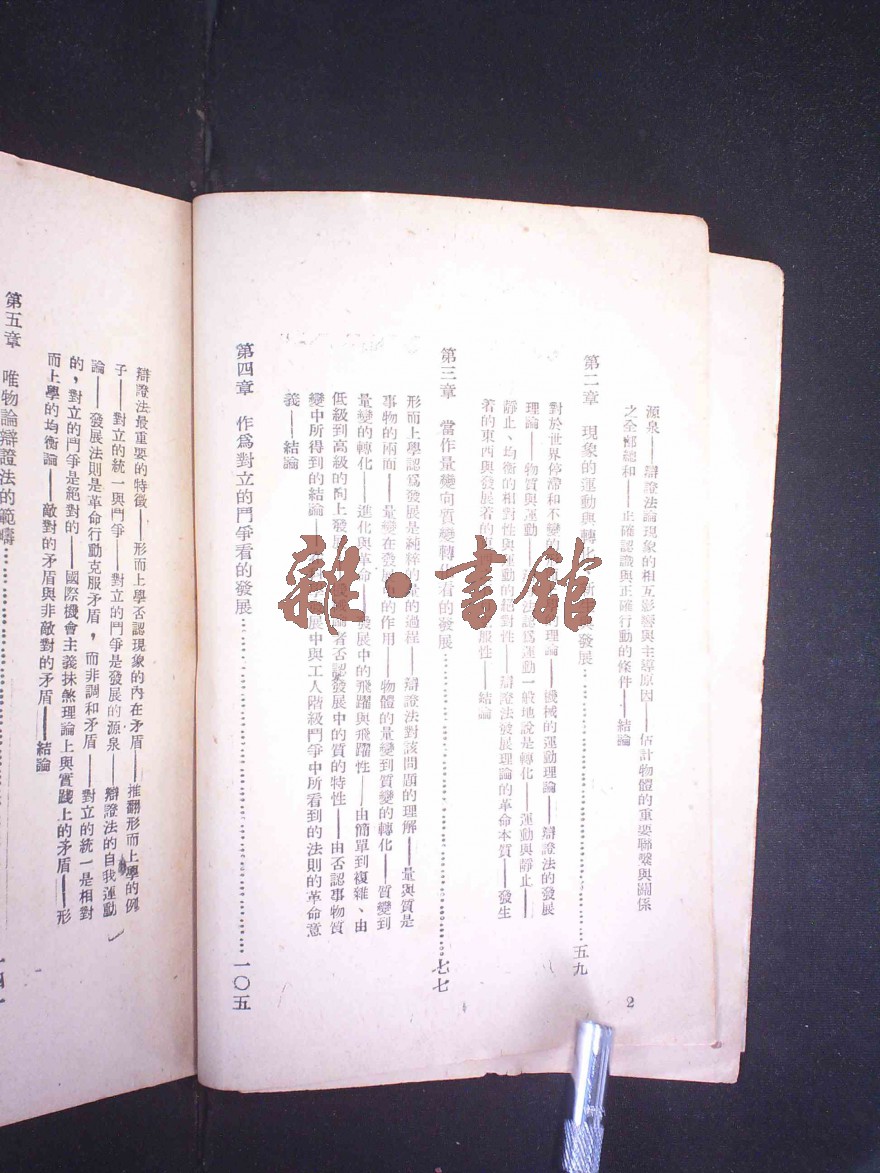 源泉——辯證法論現象的相互影響與主導原因——估計物體的重要聯繫與關係
之全部總和——正確認識與正確行動的條件——結論
第二章 現象的運動與轉化 發展……五九
對於世界停滯和不變的 理論——機械的運動理論——辯證法的發展
理論——物質與運動—— 法認爲運動一般地說是轉化——運動與靜止——
靜止、均衡的相對性與運動的絕對性——辯證法發展理論的革命本質——發生
着的東西與發展着的 般性——結論
第三章 當作量變向質變轉 看的發展……七七
形而上學認爲發展是純粹 量的過程——辯證法對該問題的理解——量與質是
事物的兩面——量變在發 的作用——物體的量變到質變的轉化——質變到
量變的轉化——進化與革命——發展中的飛躍與飛躍性——由簡單到複雜、由
低級到高級的向上發 論者否認發展中的質的特性——由否認事物質
變中所得到的結論—— 展中與工人階級鬥爭中所看到的法則的革命意
義——結論
第四章 作爲對立的鬥爭看的發展……一〇五
2
辯證法最重要的特徵——形而上學否認現象的內在矛盾——推翻形而上學的例
子——對立的統一與鬥爭——對立的鬥爭是發展的源泉——辯證法的自我運動
論——發展法則是革命行動克服矛盾，而非調和矛盾——對立的統一是相對
的，對立的鬥爭是絕對的——國際機會主義抹煞理論上與實踐上的矛盾——形
而上學的均衡論——敵對的矛盾與非敵對的矛盾——結論
第五章 唯物論辯證法的範疇……
雜·書館